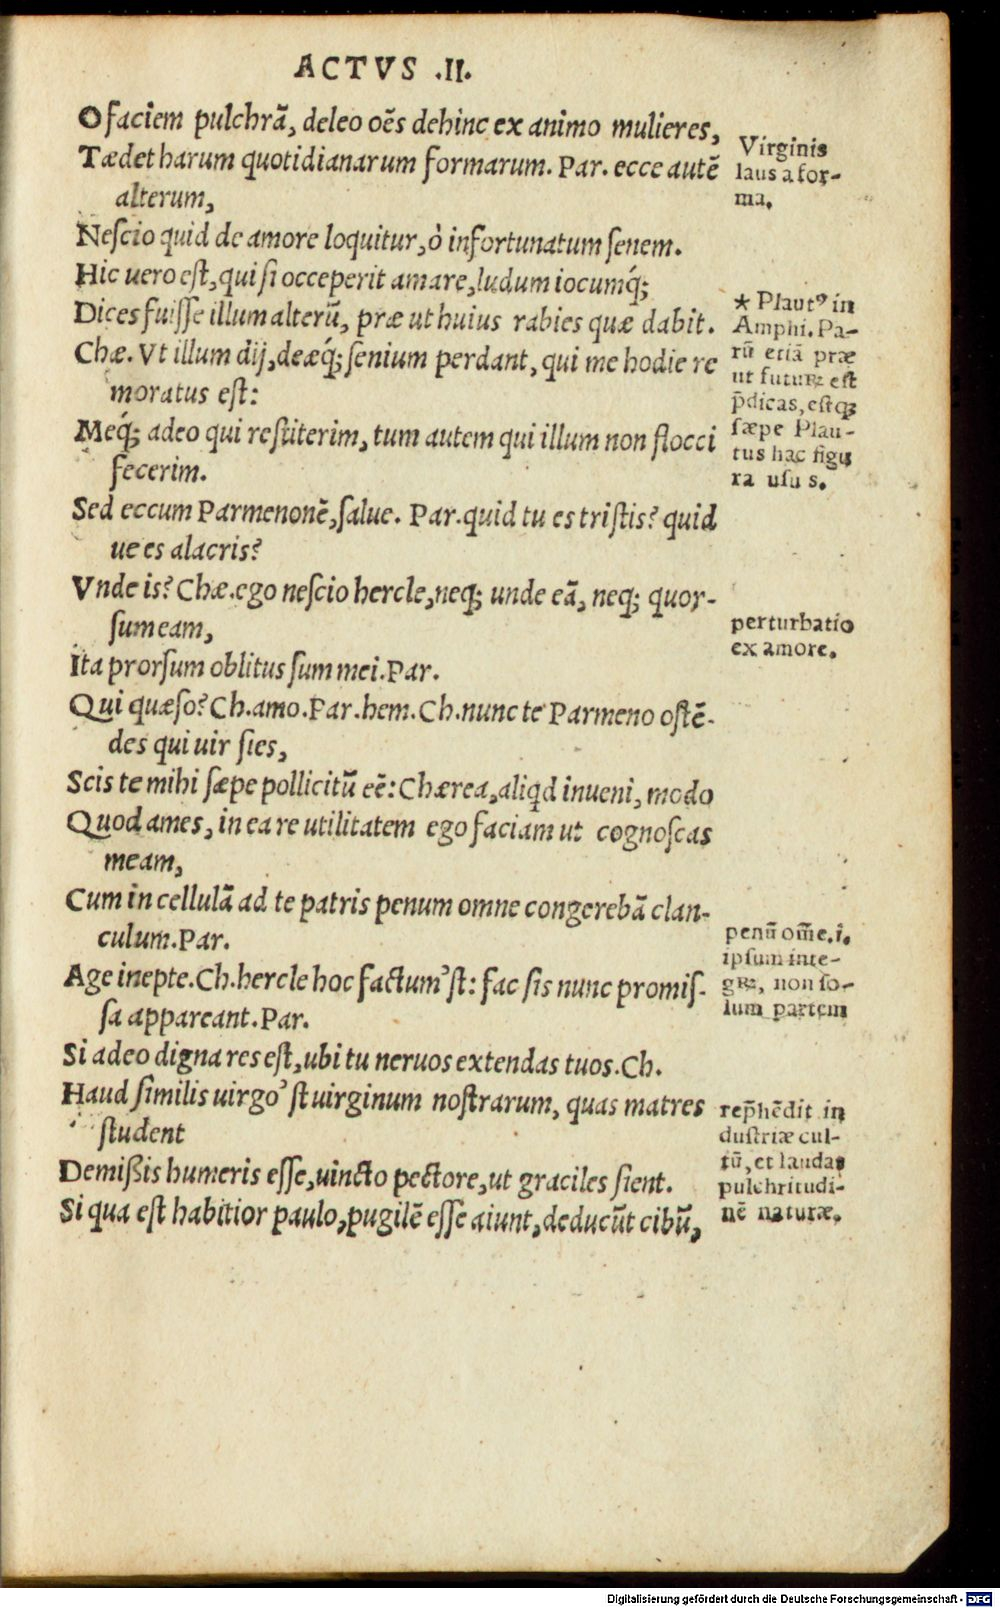 ACTVS .II.
O faciem pulchrã, deleo oẽs dehinc ex animo mulieres,
Tædet harum quotidianarum formarum. Par. ecce autẽ
alterum,
Neſcio quid de amore loquitur, ò infortunatum ſenem.
Hic uero eſt, qui ſi occeperit amare, ludum iocumq́;
Dices fuiſſe illum alterũ, præ ut huius rabies quæ dabit.
Chæ. Vt illum dij, deæq́; ſenium perdant, qui me hodie re
moratus eſt:
Meq́; adeo qui reſtiterim, tum autem qui illum non flocci
fecerim.
Sed eccum Parmenonẽ, ſalue. Par. quid tu es triſtis? quid
ue es alacris?
Vnde is? Chæ. ego neſcio hercle, neq; unde eã, neq; quor-
ſum eam,
Ita prorſum oblitus ſum mei. Par.
Qui quæſo? Ch. amo. Par. hem. Ch. nunc te Parmeno oſtẽ-
des qui uir ſies,
Scis te mihi ſæpe pollicitũ eẽ: Chærea, aliqd inueni, modo
Quod ames, in ea re utilitatem ego faciam ut cognoſcas
meam,
Cum in cellulã ad te patris penum omne congerebã clan-
culum. Par.
Age inepte. Ch. hercle hoc factum'ſt: fac ſis nunc promiſ-
ſa appareant. Par.
Si adeo digna res eſt, ubi tu neruos extendas tuos. Ch.
Haud ſimilis uirgo'ſt uirginum noſtrarum, quas matres
ſtudent
Demißis humeris eſſe, uincto pectore, ut graciles ſient.
Si qua eſt habitior paulo, pugilẽ eſſe aiunt, deducũt cibũ,
Virginis
laus a for-
ma.
★ Plautꝰ in
Amphi. Pa-
rũ etiã præ
ut futuꝝ eſt
p̃dicas, eſtqꝫ
ſæpe Plau-
tus hac figu
ra uſus.
perturbatio
ex amore.
penũ om̃e. i.
ipſum inte-
gꝝ, non ſo-
lum partem
rep̃hẽdit in
duſtriæ cul-
tũ, et laudat
pulchritudi-
nẽ naturæ.
Digitalisierung gefördert durch die Deutsche Forschungsgemeinschaft - DFG